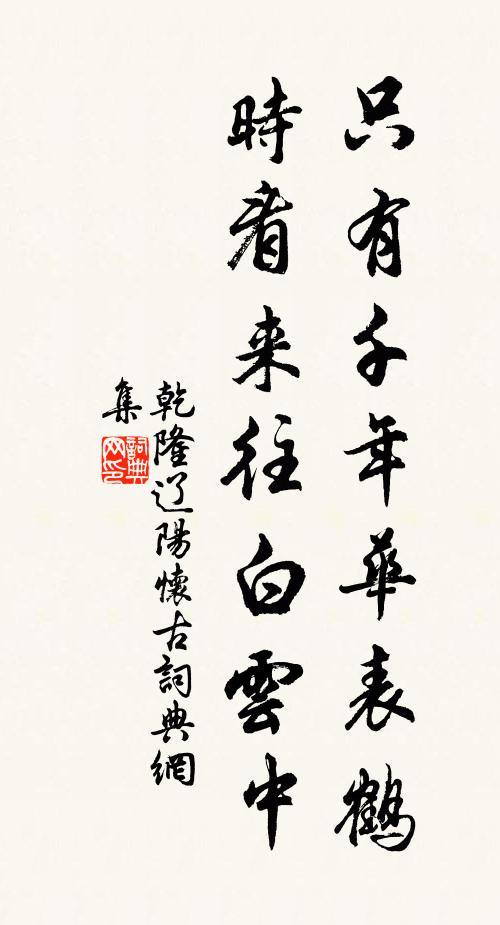 只有千年華表鶴
時看来往白雲中
乾隆辽陽懷古詞典網
集
詞典
网印